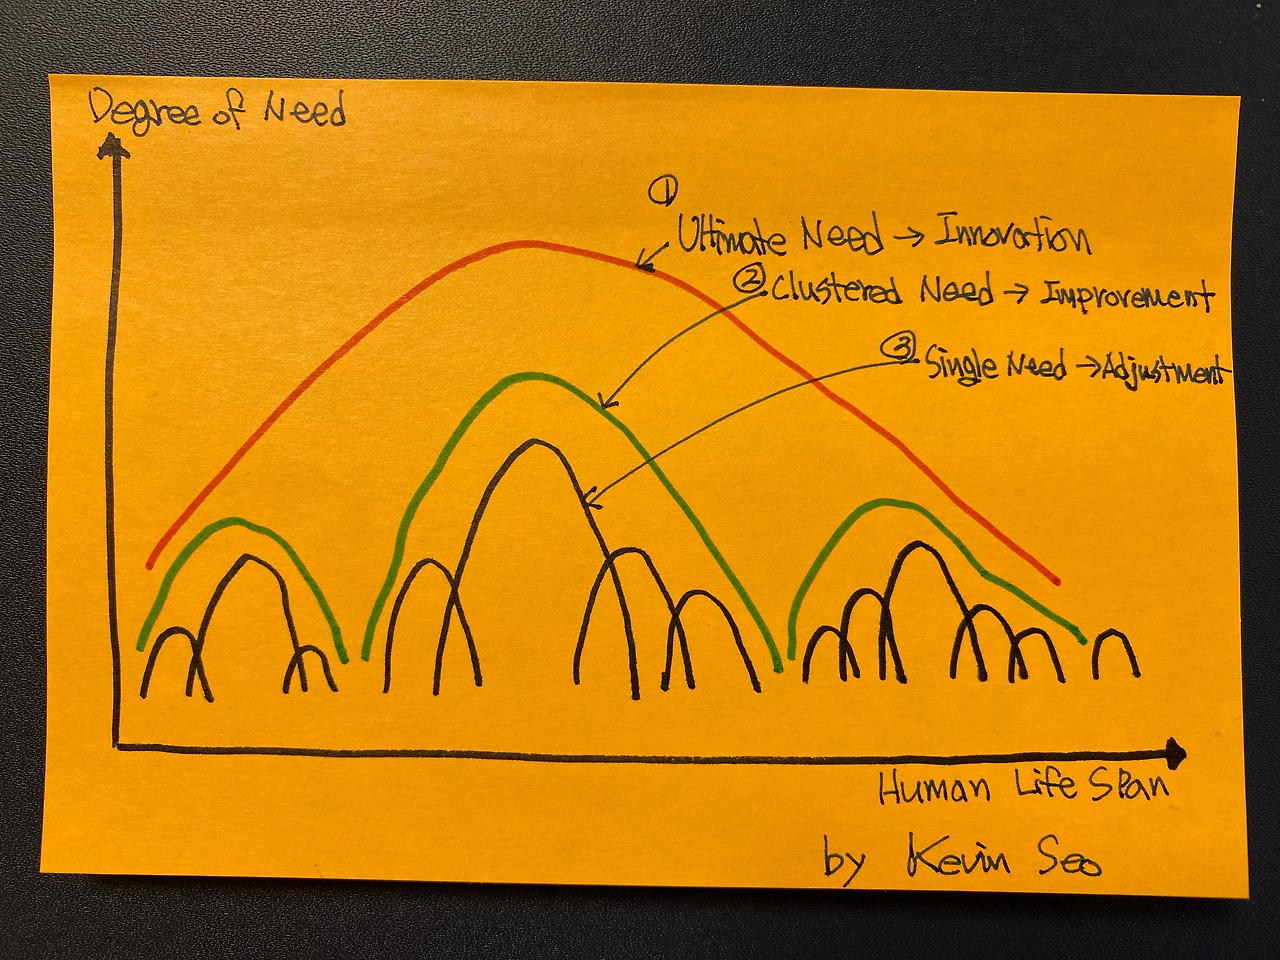 Degree of Need
①
Ultimate Need → Innovation
② Clustered Need → Improvement
③ Single Need → Adjustment
Human Life Span
by Kevin Seo